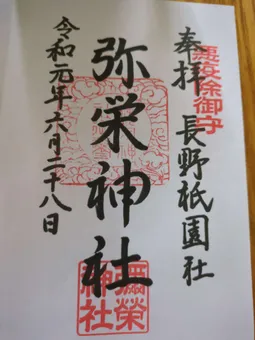 奉拝
悪疫除御守
長野祇園社
弥栄神社
彌榮神社
令和元年六月二十八日